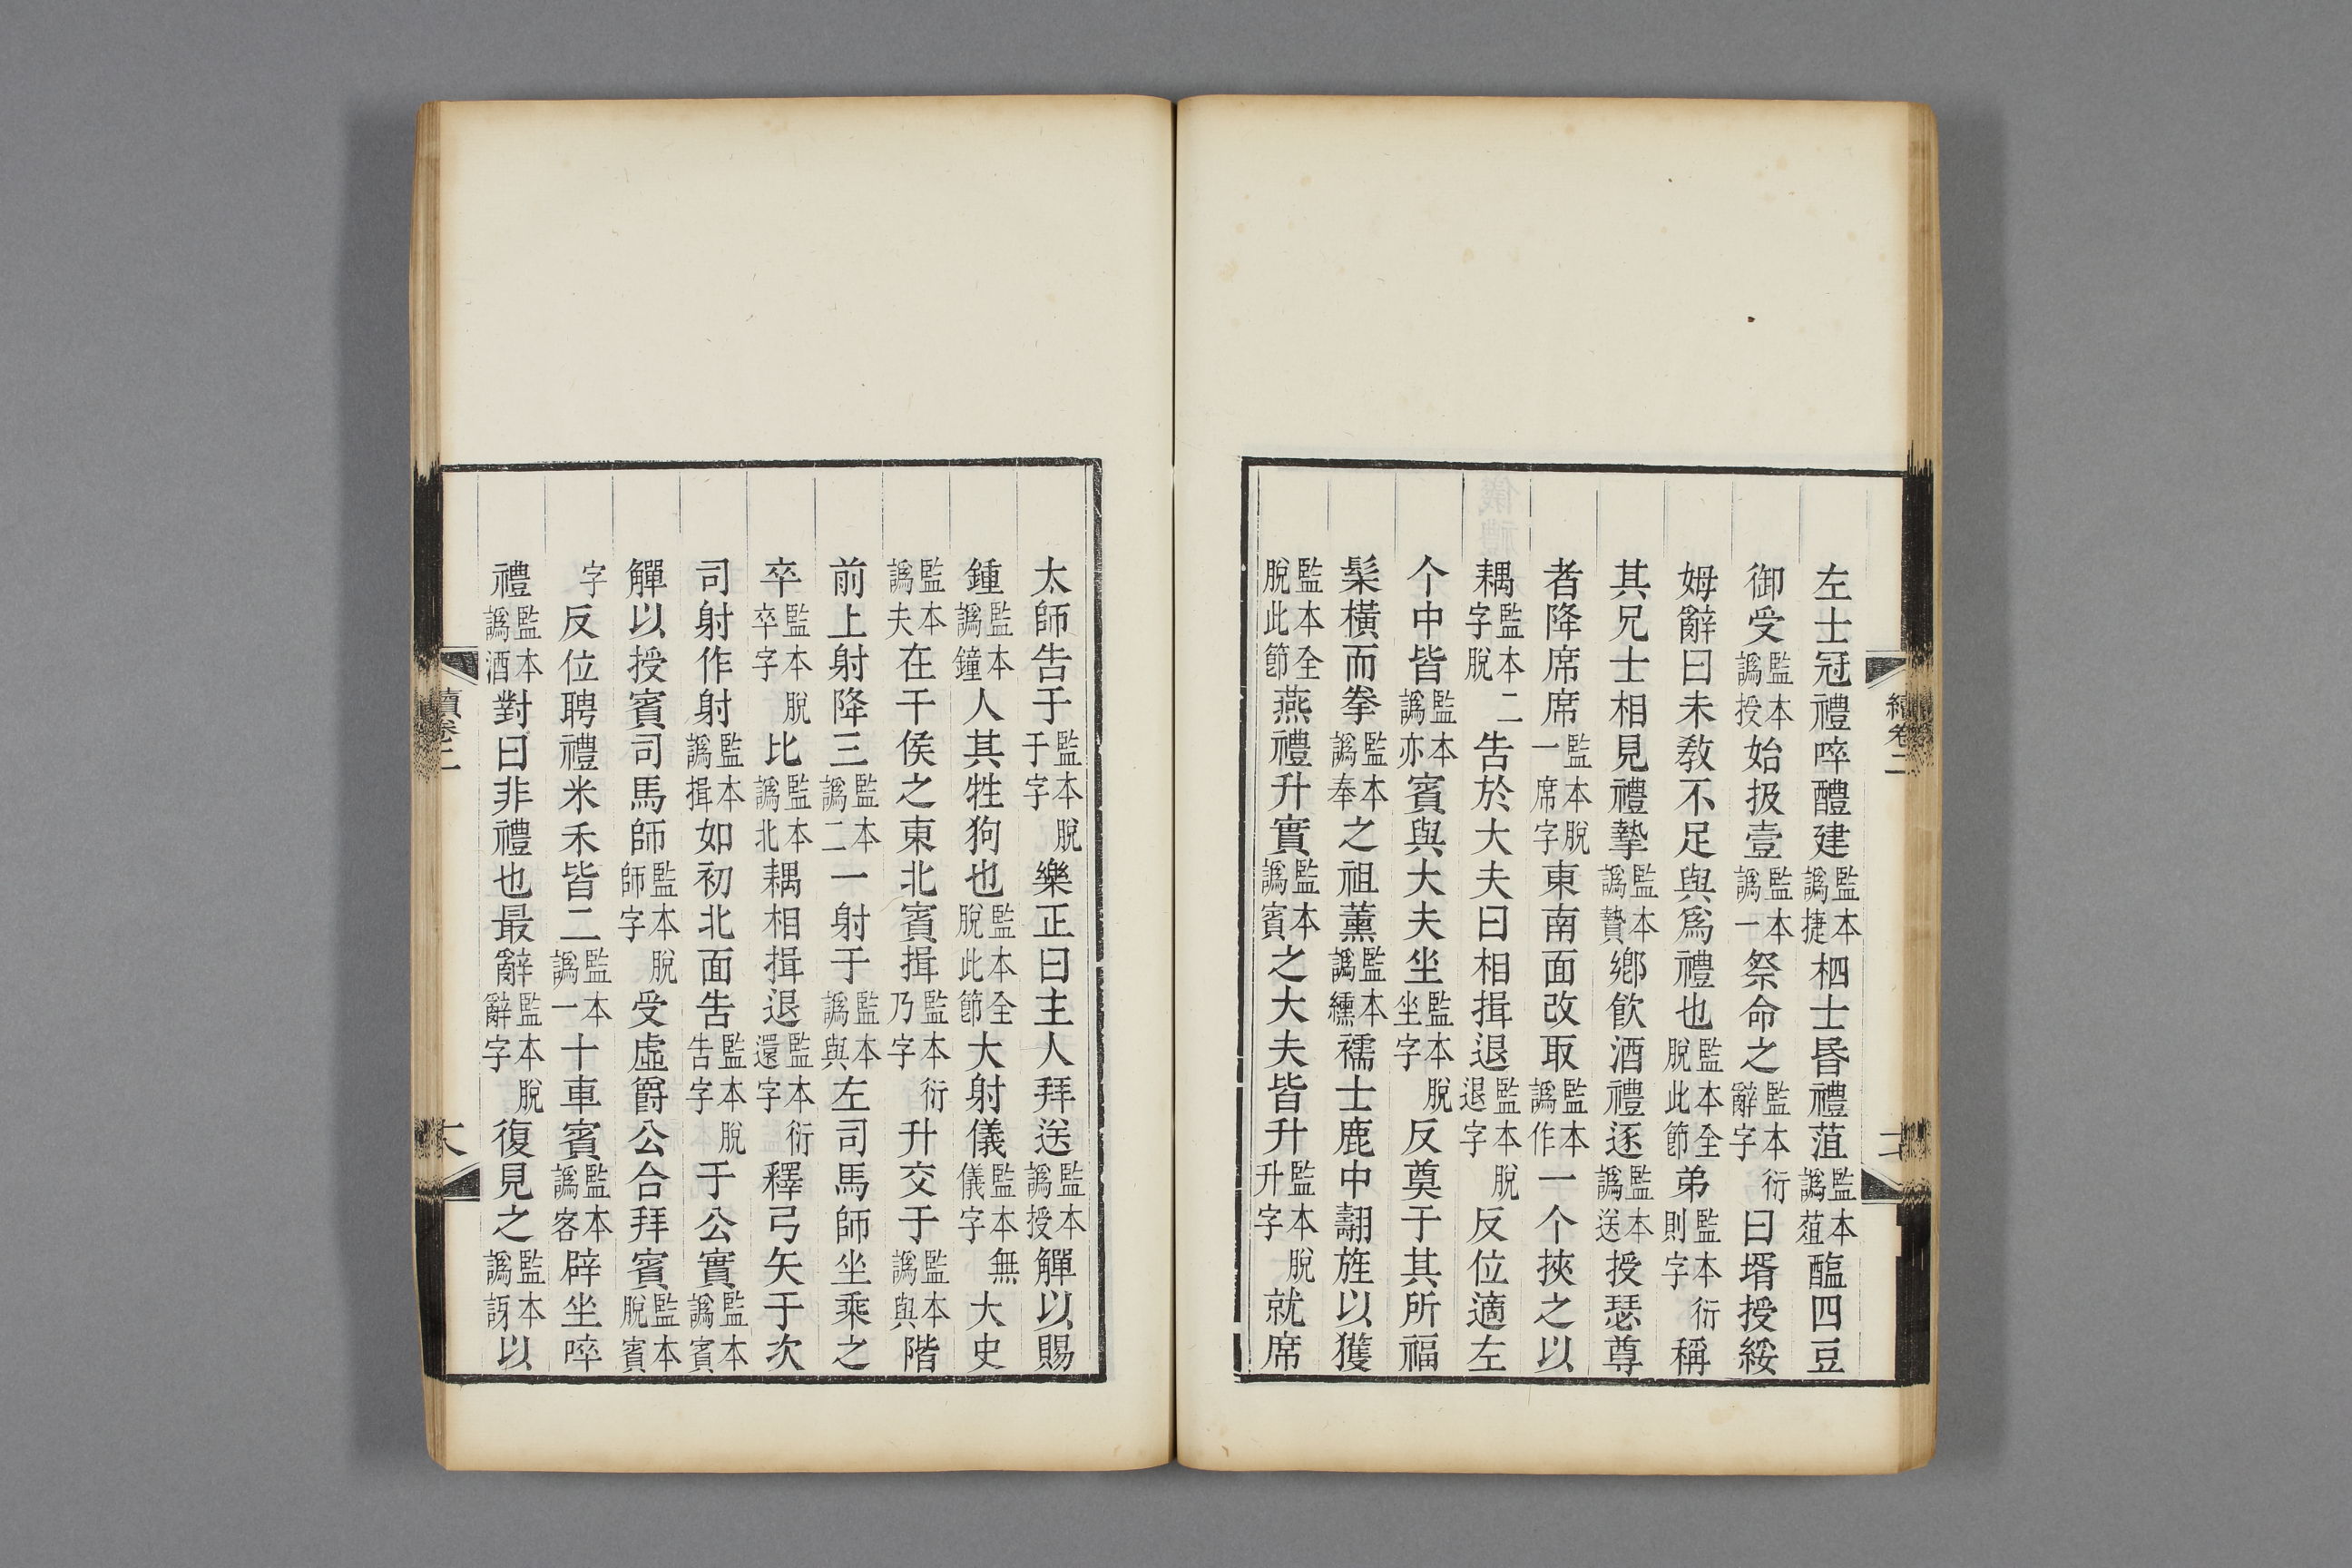 左士冠禮啐醴建監本譌捷柶士昏禮菹監本譌葅醢四豆
御受監本譌授始扱壹監本譌一祭命之監本衍辭字曰壻授綏
姆辭曰未敎不足與爲禮也監本全脫此節弟監本衍則字稱
其兄士相見禮摯監本譌贄鄕飮酒禮逐監本譌送授瑟尊
者降席席監本脫一席字東南面改取監本譌作一个挾之以
耦監本脫二字告於大夫曰相揖退監本脫退字反位適左
个中皆監本譌亦賓與大夫坐監本脫坐字反奠于其所福
髤橫而拳監本譌奉之祖薰監本譌纁襦士鹿中翿旌以獲
監本全脫此節燕禮升實監本譌賓之大夫皆升監本脫升字就席
太師告于監本脫于字樂正曰主人拜送監本譌授觶以賜
鍾監本譌鐘人其牲狗也監本全脫此節大射儀監本無儀字大史
監本譌夫在干侯之東北賓揖監本衍乃字升交于監本譌與階
前上射降三監本譌二一射于監本譌與左司馬師坐乘之
卒監本脫卒字比監本譌北耦相揖退監本衍還字釋弓矢于次
司射作射監本譌揖如初北面告監本脫告字于公實監本譌賓
觶以授賓司馬師監本脫師字受虛爵公合拜賓監本脫賓
字反位聘禮米禾皆二監本譌一十車賓監本譌客辟坐啐
禮監本譌酒對曰非禮也最辭監本脫辭字復見之監本譌訝以
續卷二
續卷二